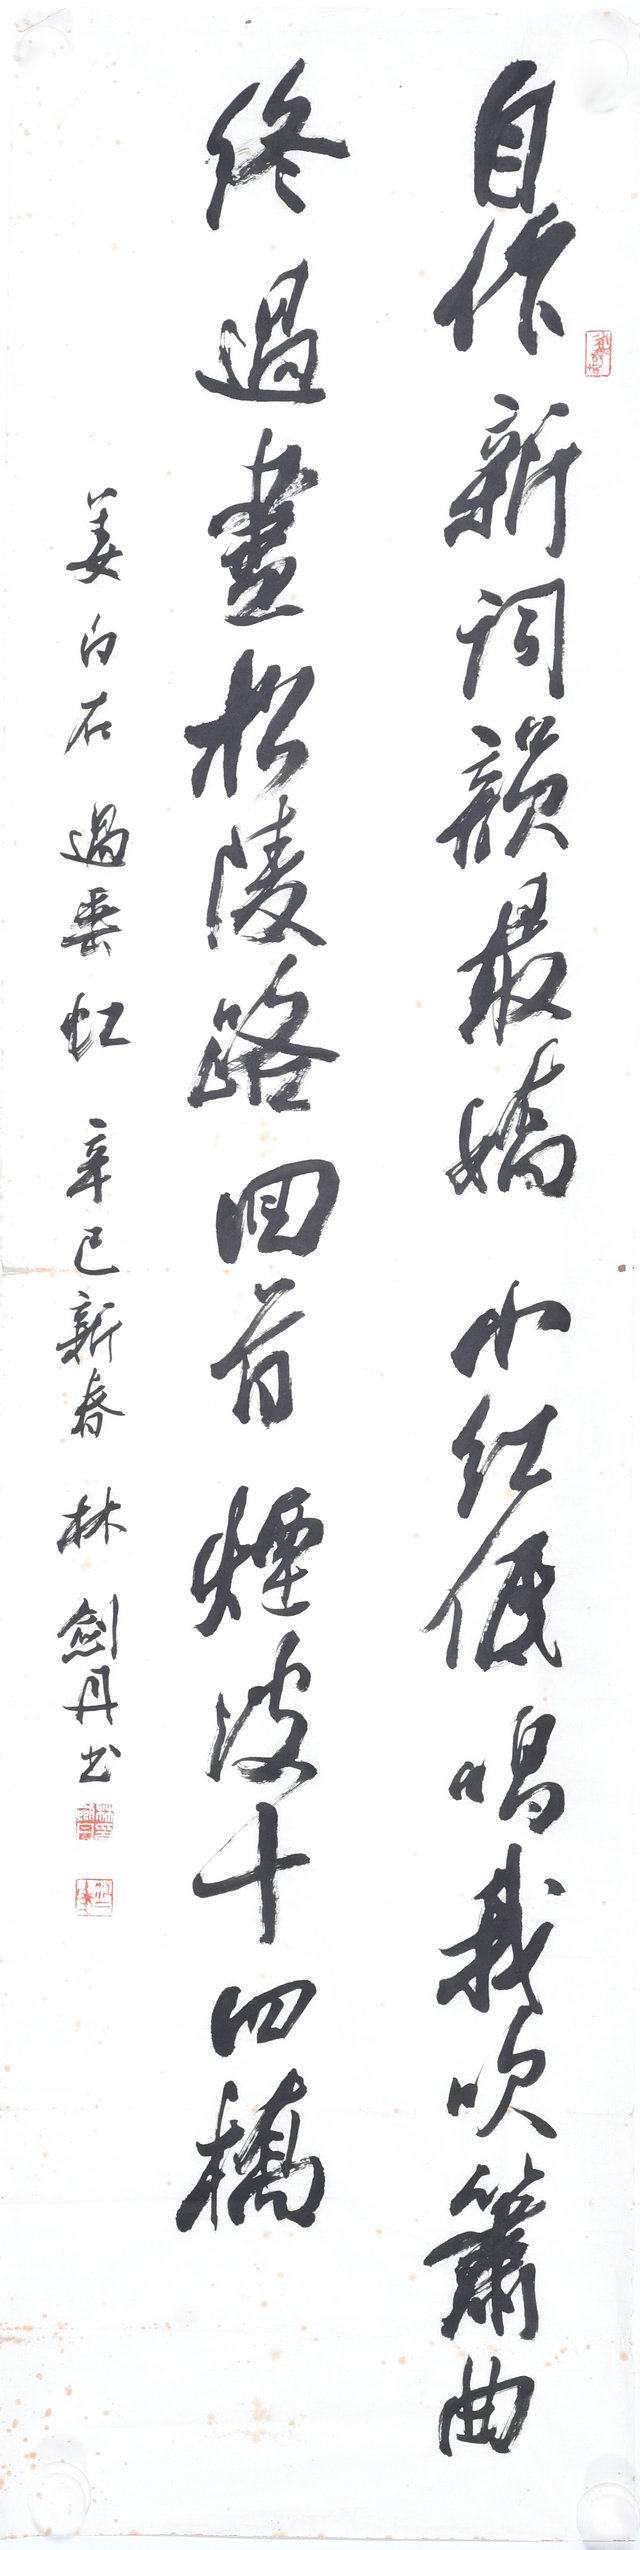 自作新词韻最嬌小红低唱我吹簫曲
终過盡松陵路回首煙波十四橋
姜白石過垂虹辛巳新春林劍丹书